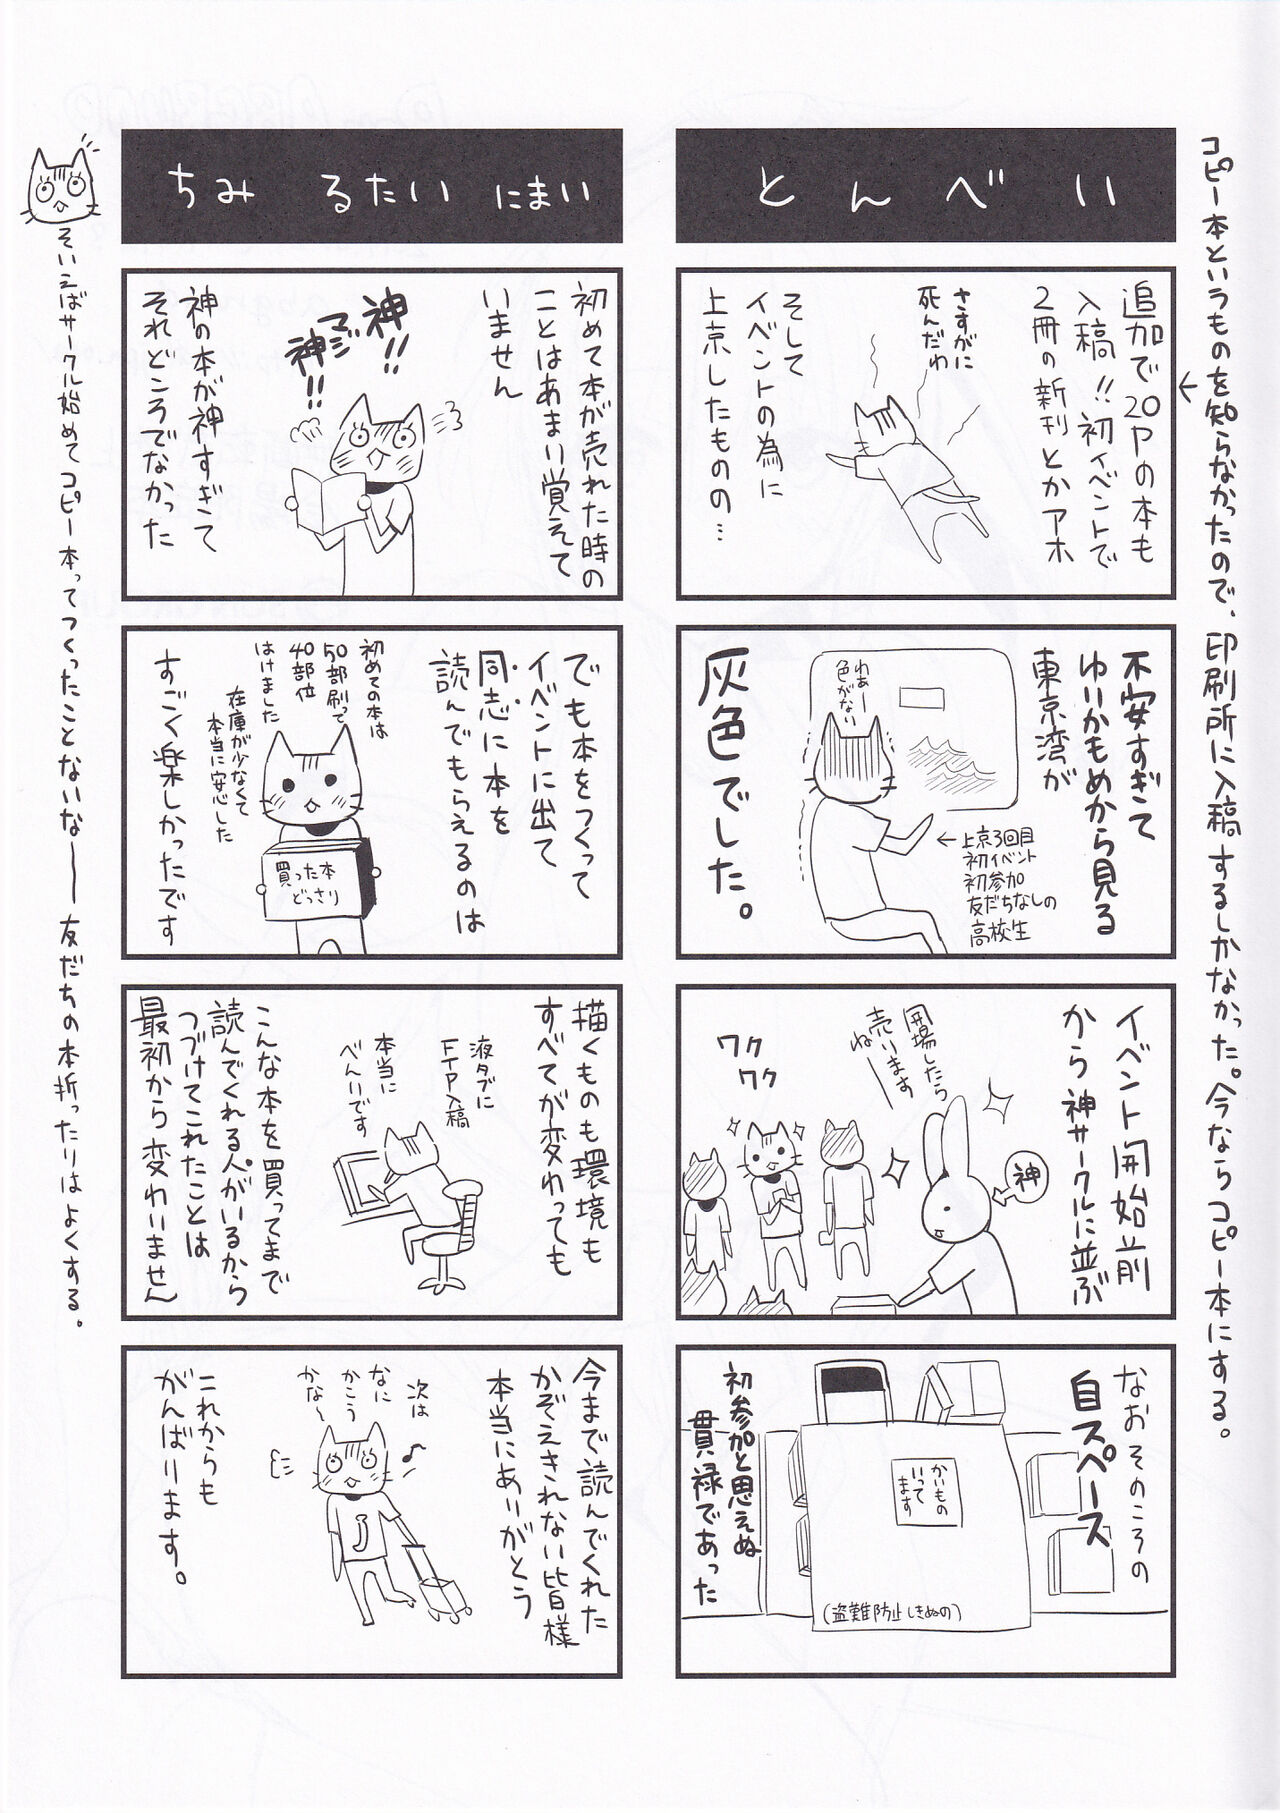 コピー本というものを知らなかったので、印刷所に入稿するしかなかった。今ならコピー本にする。
とんべい
追加で20Pの本も
入稿!!初イベントで
2冊の新刊とかアホ
さすがに
死んだわ
そして
イベントの為に
上京したものの…
不安すぎて
ゆいかもめから見る
東京湾が
わぁー
色がない
灰色でした。
←上京3回目
初イベント
初参加
友だちなしの
高校生
イベント開始前
から神サークルに並ぶ
神
開場したら
売います
ねー
ワク
ワク
なおそのころの
自スペース
かいもの
いって
ます
(盗難防止しきぬの)
初参加と思えぬ
貫禄であった
ちみるたいにまい
初めて本が売れた時の
ことはあまい覚えて
いません
神!!
マジ
神!!
神の本が神すぎて
それどころでなかった
でも本をつくって
イベントに出て
同志に本を
読んでもらえるのは
初めての本は
50部刷って
40部位
はけました
在庫が少なくて
本当に安心した
買った本
どっさり
すごく楽しかったです
描くものも環境も
すべてが変わっても
液タブに
FTP入稿
本当に
べんいです
こんな本を買ってまで
読んでくれる人がいるから
つづけてこれたことは
最初から変わいません
今まで読んでくれた
かぞえきれない皆様
本当にあいがとう
次は
なに
かこう
かな〜
J
これからも
がんばります。
そいえばサークル始めてコピー本ってつくったことないなー 友だちの本折ったりはよくする。